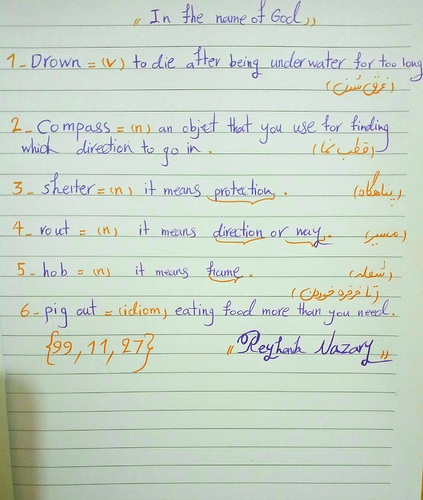 " In the name of God "
1_ Drown = (v) to die after being under water for too long
(غرق شدن)
2_ Compass = (n) an objet that you use for finding
which direction to go in . (قطب نما)
3_ sheiter = (n) it means protection . (پناهگاه)
4_ rout = (n) it means direction or way . (مسیر)
5_ hob = (n) it means flame . (شعله)
(تا خرخره خوردن)
6_ pig out = (idiom) eating food more than you need.
{99, 11, 27} " Reyhank Nazary "